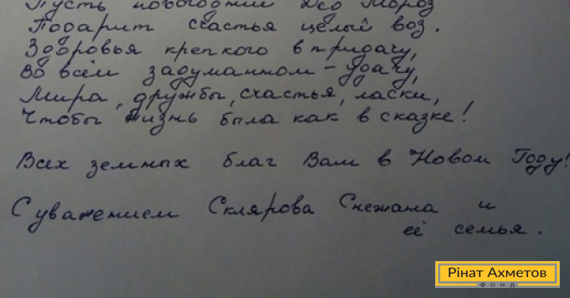 Пусть новогодний Дед Мороз
Подарит счастья целый воз.
Здоровья крепкого в придачу,
Во всём задуманном - удачу,
Мира, дружбы, счастья, ласки,
Чтобы жизнь была как в сказке!
Всех земных благ Вам в Новом Году!
С уважением Склярова Снежана и
её семья.
Рінат Ахметов
ФОНД